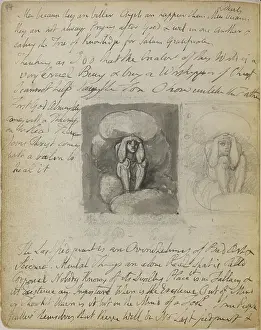 Men because they are better Angels are happier than Men &
they do not always Prying after Good & Evil in one Another &
eating the Tree of Knowledge for Satans Gratification
Thinking as I do that the Creator of this World is a
very Cruel Being & being a Worshipper of Christ
I cannot help saying the Son O how unlike the Father
First God Almighty
comes with a Thump
on the Head Then
Jesus Christ comes
with a balm to
heal it
The Last Judgment is an Overwhelming of Bad Art &
Science. Mental Things are alone Real what is Calld
Corporeal Nobody Knows of its Dwelling Place it is in Fallacy &
its Existence an Imposture Where is the Existence Out of Mind
or Thought Where is it but in the Mind of a Fool. Some People
flatter themselves that there will be No Last Judgment &